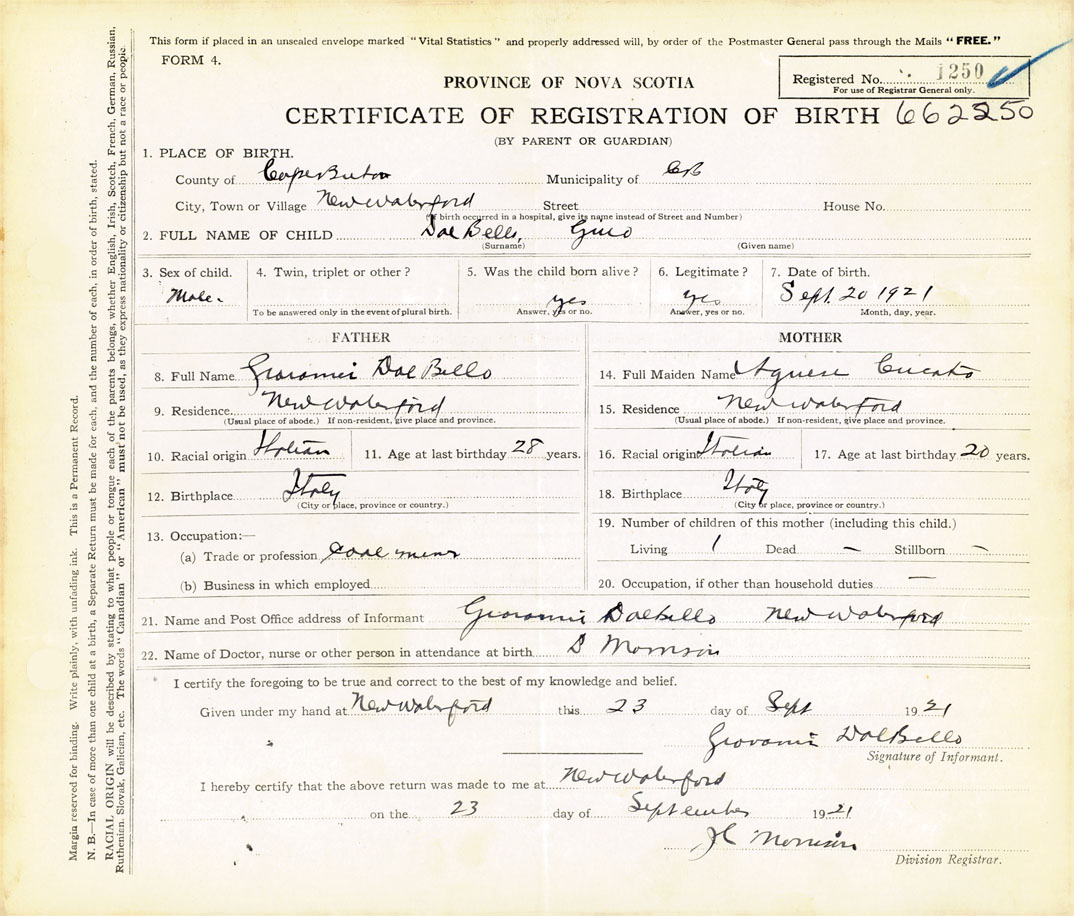 This form if placed in an unsealed envelope marked "Vital Statistics" and properly addressed will, by order of the Postmaster General pass through the Mails "FREE."
FORM 4.
Registered No. 1250
For use of Registrar General only.
PROVINCE OF NOVA SCOTIA
CERTIFICATE OF REGISTRATION OF BIRTH 662250
(BY PARENT OR GUARDIAN)
1. PLACE OF BIRTH.
County of Cape Breton Municipality of CB
City, Town or Village New Waterford Street House No.
(If birth occurred in a hospital, give its name instead of Street and Number)
2. FULL NAME OF CHILD Dal Bello, Gino
(Surname) (Given name)
3. Sex of child. 4. Twin, triplet or other? 5. Was the child born alive? 6. Legitimate? 7. Date of birth.
Male. yes yes Sept. 20 1921
To be answered only in the event of plural birth. Answer, yes or no. Answer, yes or no. Month, day, year.
FATHER MOTHER
8. Full Name Giovanni Dal Bello 14. Full Maiden Name Agnese
9. Residence New Waterford 15. Residence New Waterford
(Usual place of abode.) If non-resident, give place and province. (Usual place of abode.) If non-resident, give place and province.
10. Racial origin Italian 11. Age at last birthday 28 years. 16. Racial origin Italian 17. Age at last birthday 20 years.
12. Birthplace Italy 18. Birthplace Italy
(City or place, province or country.) (City or place, province or country.)
13. Occupation:— 19. Number of children of this mother (including this child.)
(a) Trade or profession coal miner Living 1 Dead — Stillborn —
(b) Business in which employed 20. Occupation, if other than household duties —
21. Name and Post Office address of Informant Giovanni Dal Bello New Waterford
22. Name of Doctor, nurse or other person in attendance at birth Morrison
I certify the foregoing to be true and correct to the best of my knowledge and belief.
Given under my hand at New Waterford this 23 day of Sept 1921
Giovanni Dal Bello
Signature of Informant.
I hereby certify that the above return was made to me at New Waterford
on the 23 day of September 1921
J C Morrison
Division Registrar.
Margin reserved for binding. Write plainly, with unfading ink. This is a Permanent Record.
N. B.—In case of more than one child at a birth, a Separate Return must be made for each, and the number of each, in order of birth, stated.
RACIAL ORIGIN will be described by stating to what people or tongue each of the parents belongs, whether English, Irish, Scotch, French, German, Russian,
Ruthenian, Slovak, Galician, etc. The words "Canadian" or "American" must not be used, as they express nationality or citizenship but not a race or people.